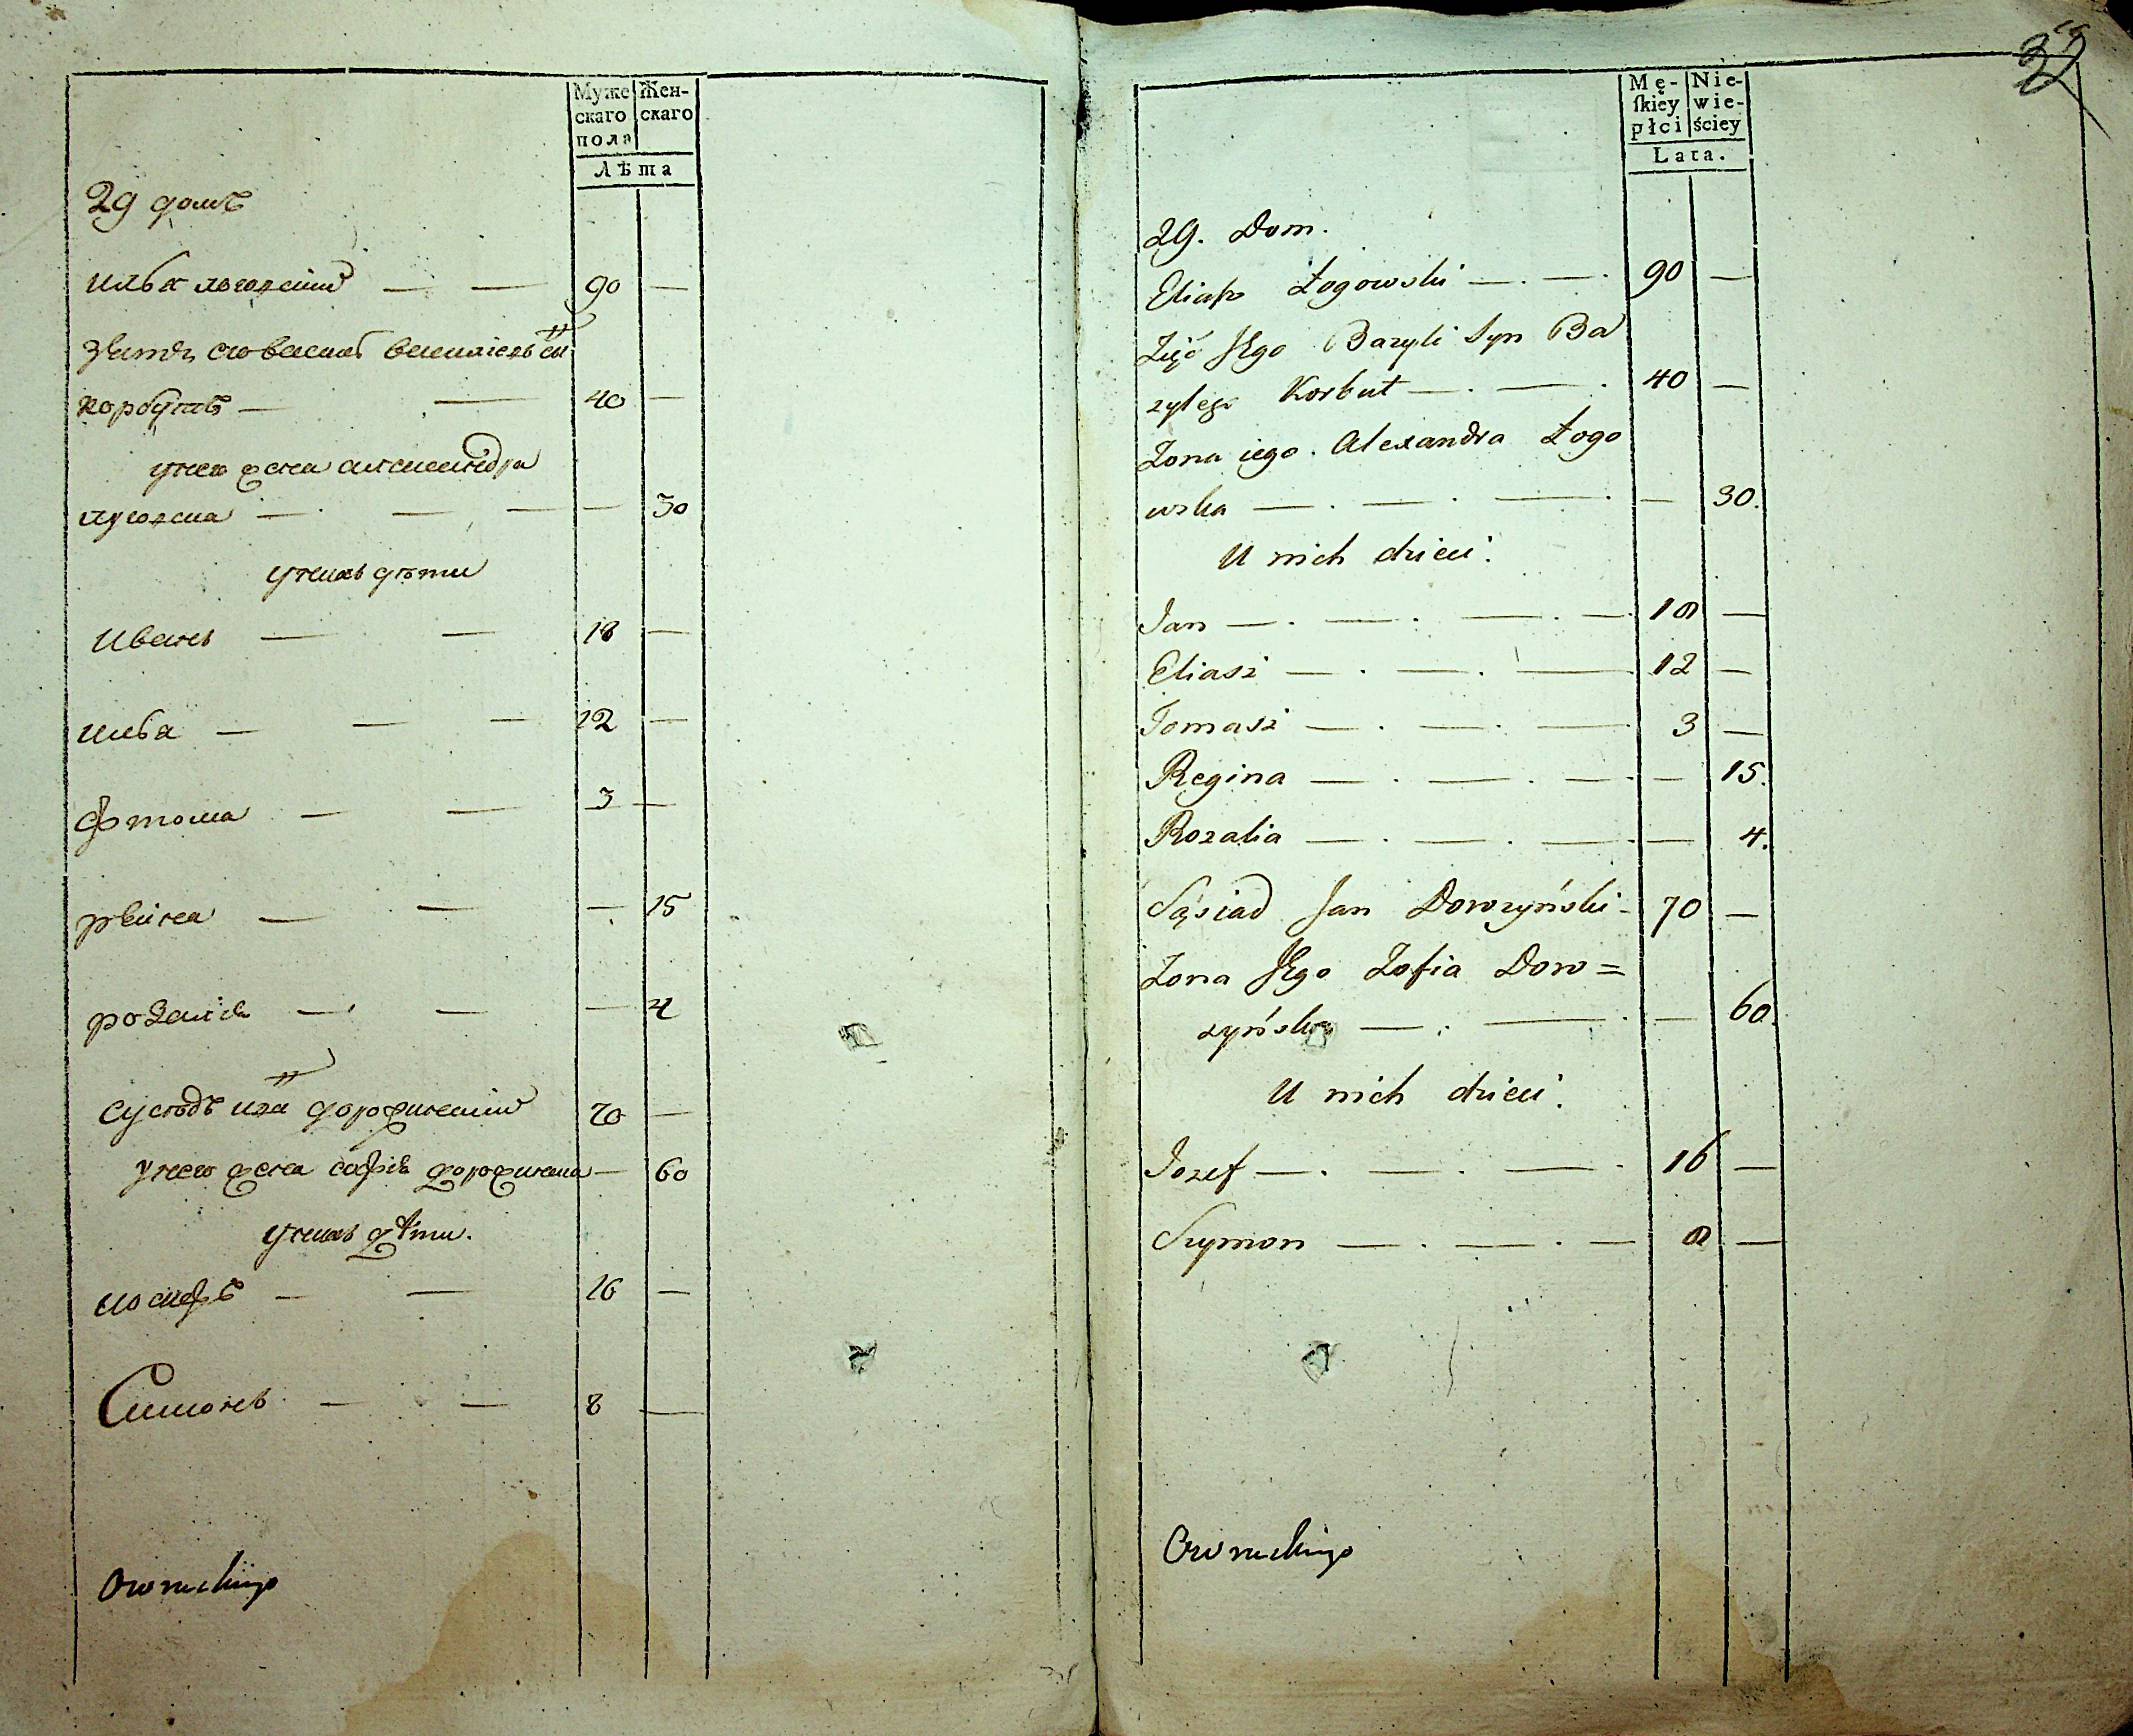 Муже
скаго
пола
Жен-
скаго
Лѣта
29 домъ
Илья Логовскій — — 90 —
Зять ево Василь Василіевъ сы
Корбутъ — — 40 —
у него жена Александра
Луговска — — — — 30
у нихъ дѣти
Иванъ — — 18 —
Илья — — — 12 —
Фтома — — 3 —
— — — 15
Розалія — — — 4
Сусѣдъ 70 —
у него жена Софія — 60
у нихъ дѣти.
Иосифъ — — 16 —
Симонъ — — 8 —
Mę-
ſkiey
płci
Nie-
wie-
ściey
Lata.
29. Dom.
Eliaſz Łogowski — . — . 90 —
Zięć Jego Bazyli Syn Ba
zylego Korbut — . — . 40 —
Żona iego. Alexandra Łogo
wska — . — . — . — 30.
U nich dzieci:
Jan — . — . — . — 18 —
Eliasz — . — . — 12 —
Tomasz — . — . — 3 —
Regina — . — . — . — 15.
Rozalia — . — . — . — 4.
Sąsiad Jan Dorozyński - 70 —
Żona Jego Zofia Doro=
zyńska — . — . — 60.
U nich dzieci:
Jozef — . — . — . 16 —
Szymon — . — . — 8 —